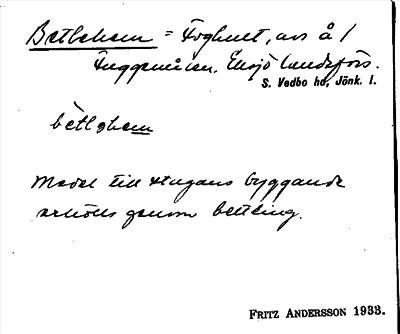 Betlehem = Foghuset, avs å 1
Fuggamåla. Eksjö landsförs.
S. Vedbo hd, Jönk. l.
bètləhem
Medel till stugans byggande
erhölls genom bettling.
FRITZ ANDERSSON 1933.